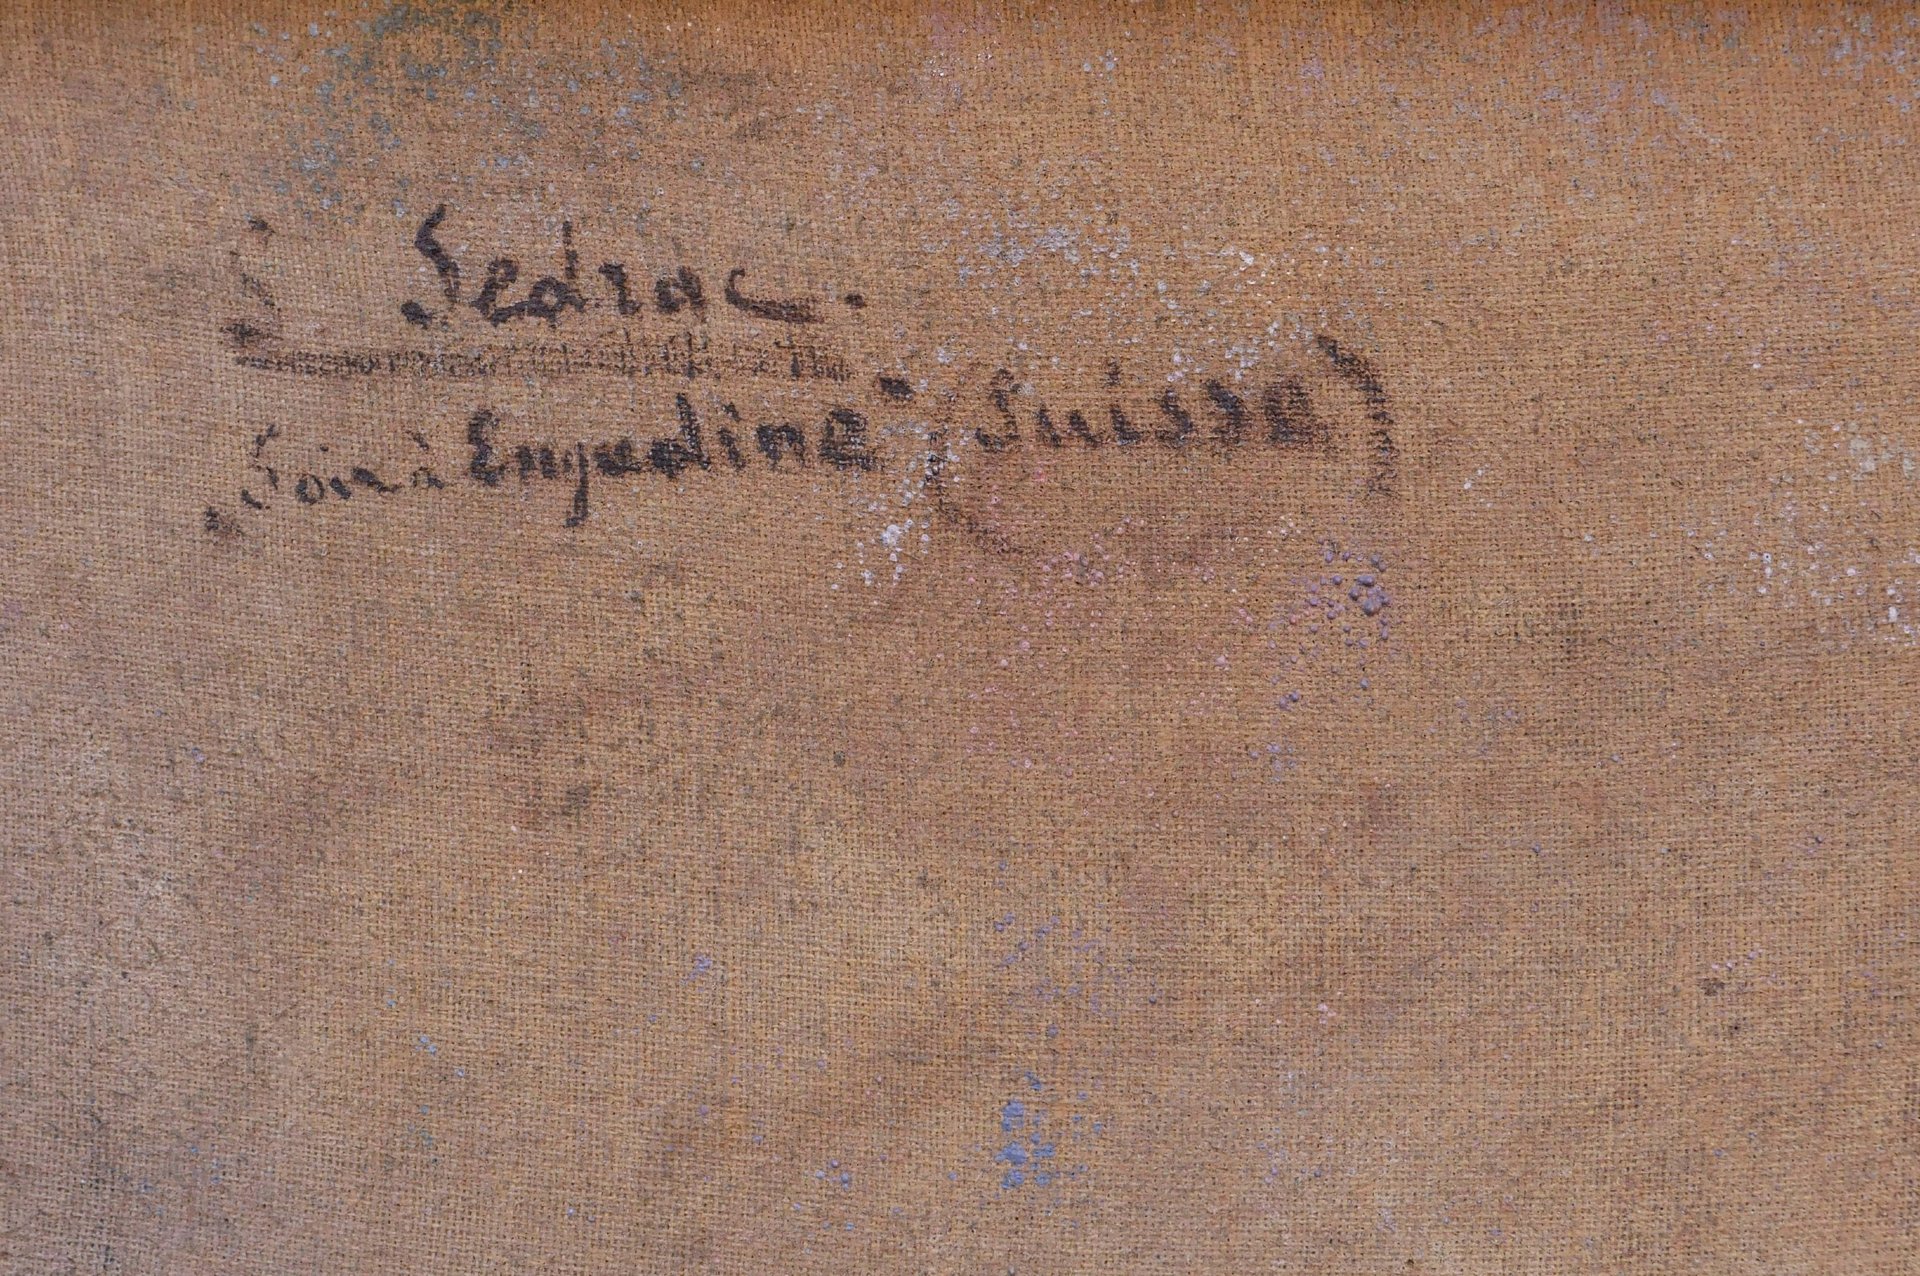 S Sedrac.
"Soir à Engadine" (Suisse)